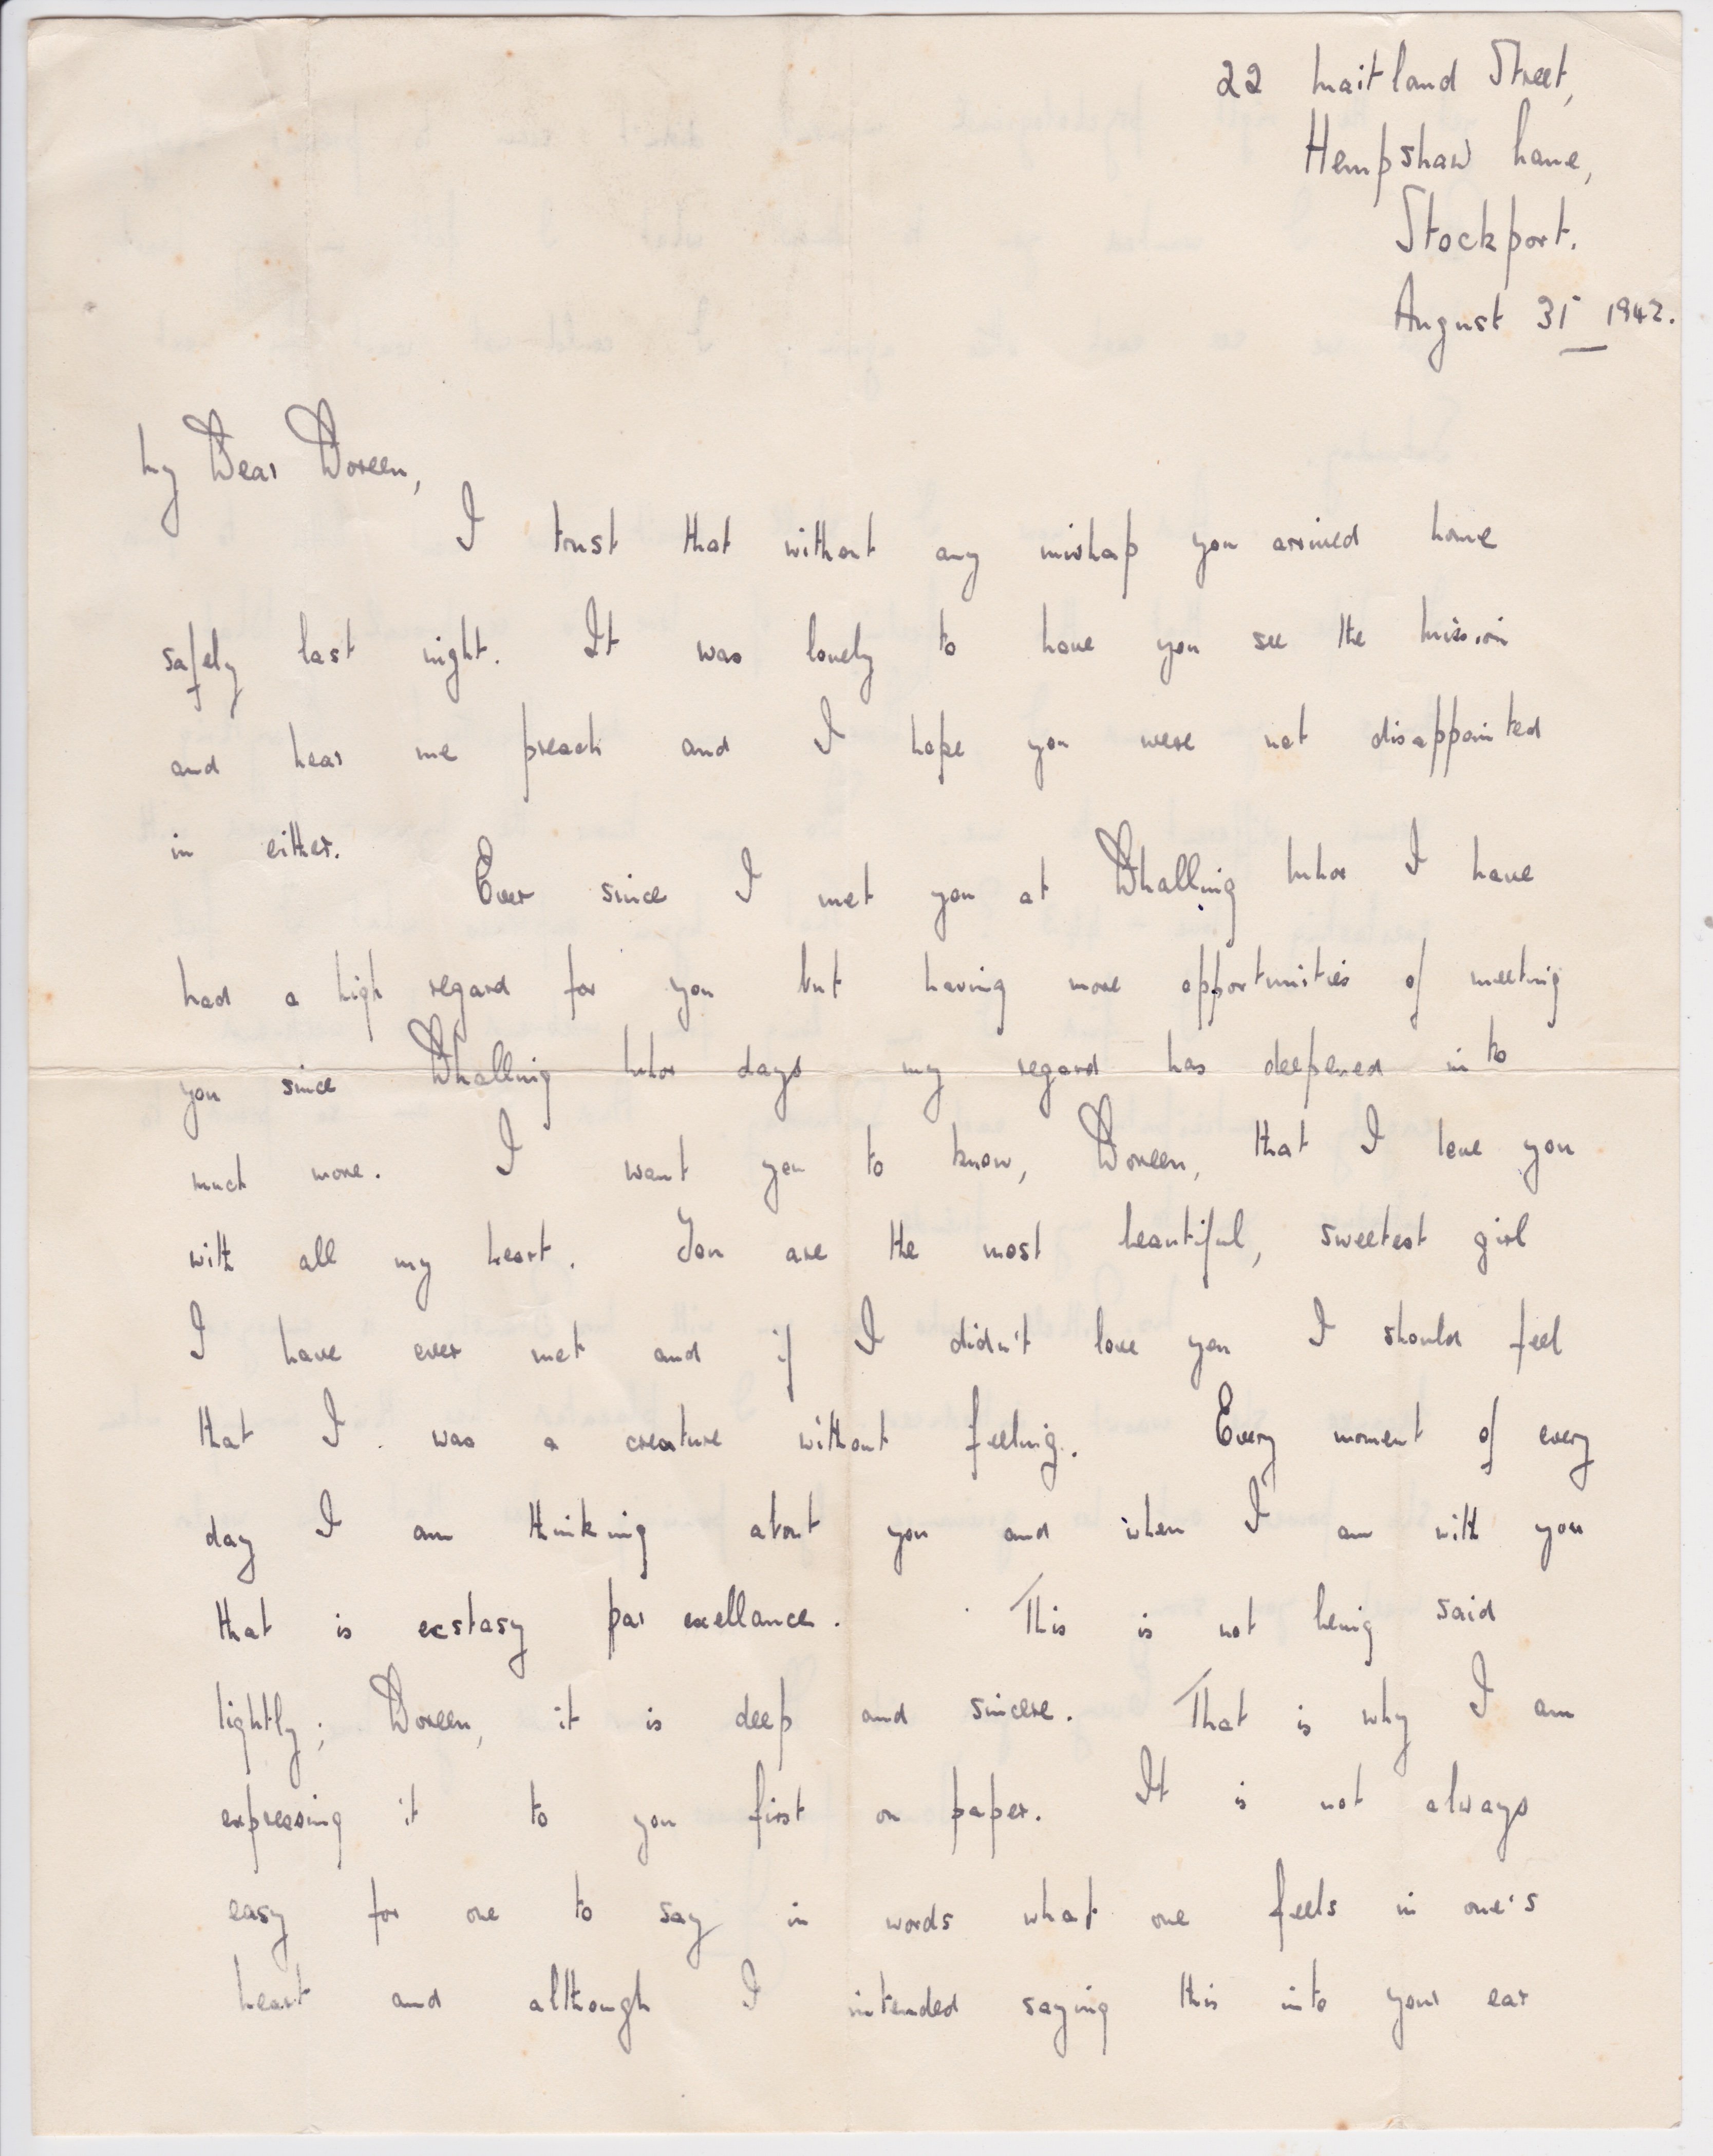 22 Maitland Street,
Hempshaw Lane,
Stockport.
August 31st 1942.
My Dear Doreen,
I trust that without any mishap you arrived home
safely last night. It was lovely to have you see the Mission
and hear me preach and I hope you were not disappointed
in either.
Ever since I met you at I have
had a high regard for you but having more opportunities of meeting
you since days my regard has deepened into
much more. I want you to know, Doreen, that I love you
with all my heart. You are the most beautiful, sweetest girl
I have ever met and if I didn't love you I should feel
that I was a creature without feeling. Every moment of every
day I am thinking about you and when I am with you
that is ecstasy par exellance. This is not being said
lightly; Doreen, it is deep and sincere. That is why I am
expressing it to you first on paper. It is not always
easy for one to say in words what one feels in one's
heart and although I intended saying this into your ear